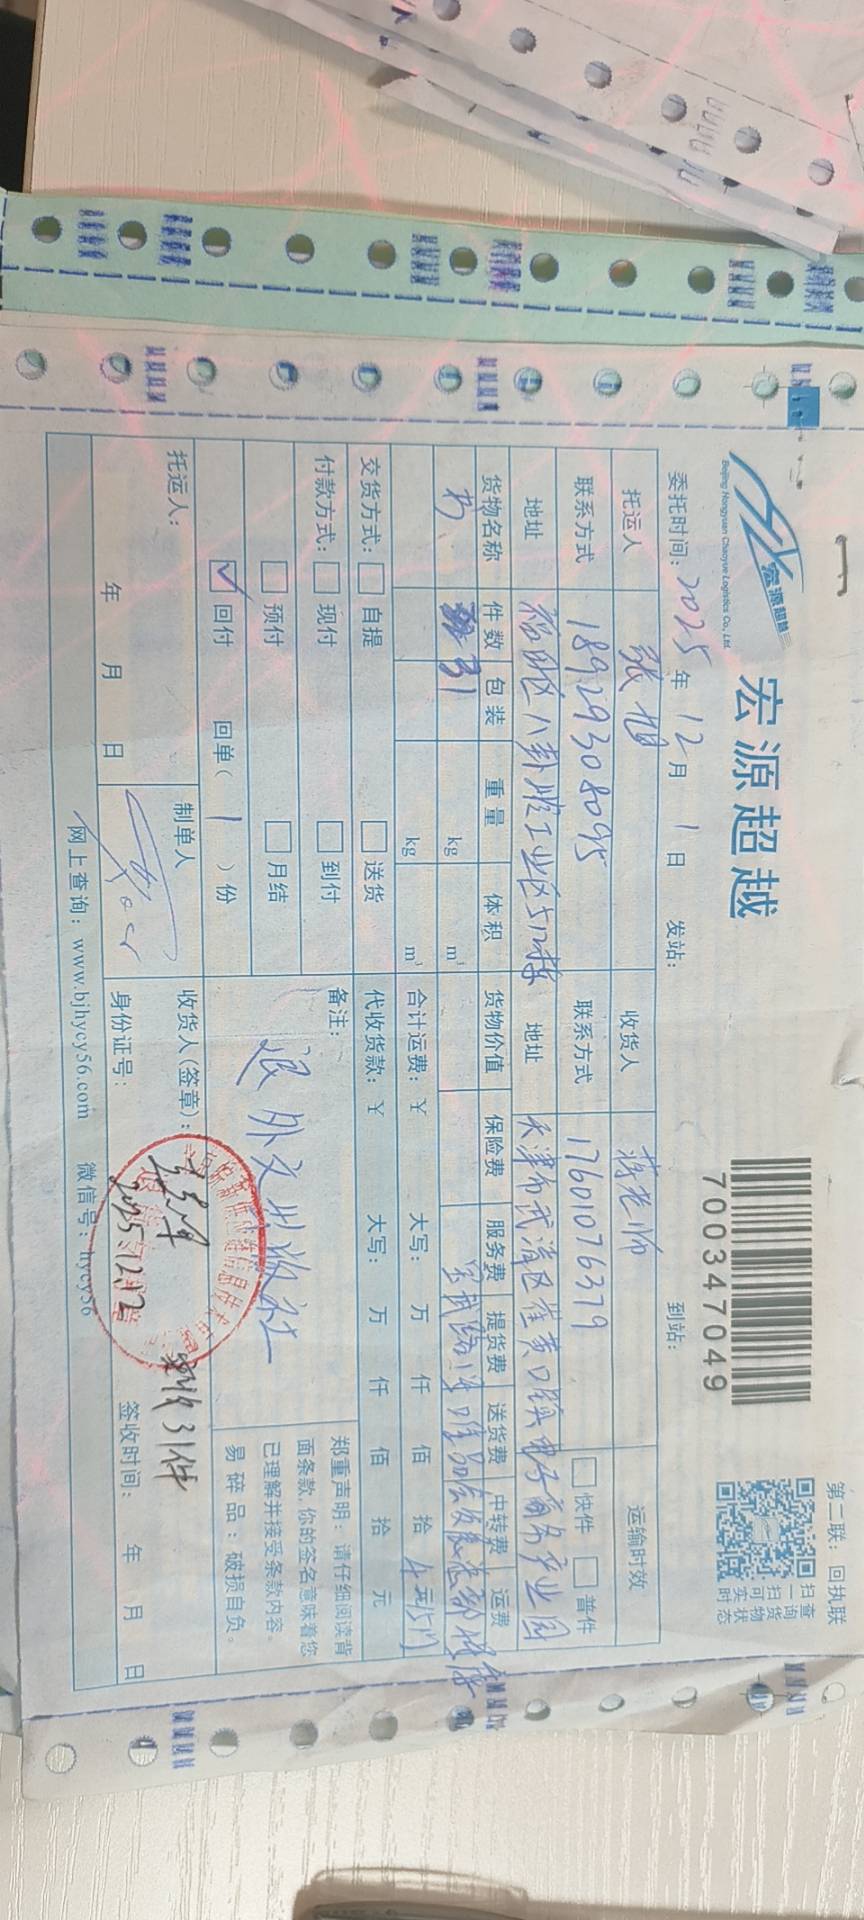 第二联：回执联
宏源超越
Beijing Hongyuan Chaoyue Logistics Co., Ltd.
宏源超越
7003347049
扫一扫可查询货物实时状态
委托时间：2025年12月1日 发站： 到站：
托运人 张旭 收货人 蒋老师 运输时效
联系方式 18929308095 联系方式 17601076379 快件 普件
地址 福田区八卦岭工业区512栋 地址 天津市武清区崔黄口镇电子商务产业园
货物名称 件数 包装 重量 体积 货物价值 保险费 服务费 提货费 送货费 中转费 运费
书 31 kg m³
kg m³ 合计运费：￥ 大写： 万 仟 佰 拾 元
交货方式： 自提 送货 代收货款：￥ 大写： 万 仟 佰 拾 元
付款方式： 现付 到付 备注：
预付 月结 退外文出版社
回付 回单（1）份
郑重声明：请仔细阅读背
面条款，你的签名意味着您
已理解并接受条款内容。
易碎品：破损自负。
托运人： 制单人 收货人(签章)：
实收31件
2025.12.12
年 月 日 身份证号： 签收时间： 年 月 日
网上查询：www.bjhycy56.com 微信号：hycy56